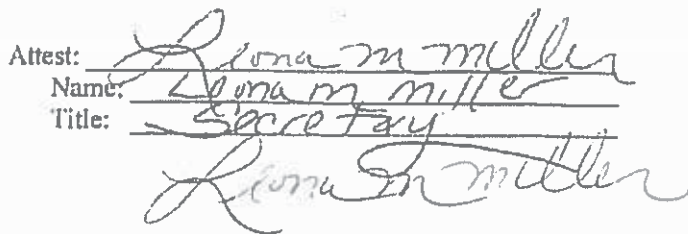 Attest: Leona M Miller
Name: Leona M Miller
Title: Secretary
Leona M Miller